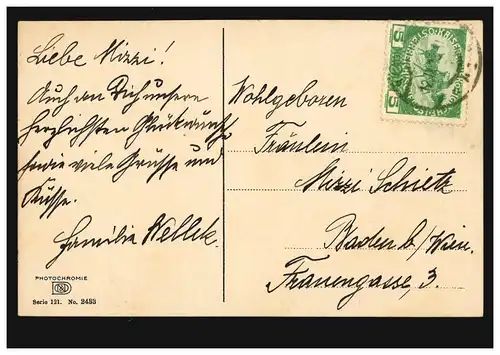 Liebe Mizzi!
Auch an Dich unsere
herzlichsten Glückwünsche
sowie viele Grüsse und
Küsse.
Familie Wellek.
PHOTOCHROMIE
Serie 121. No. 2483
5 5
Wohlgeboren
Fräulein
Mizzi Schietz
Baden b/Wien.
Frauengasse, 3.